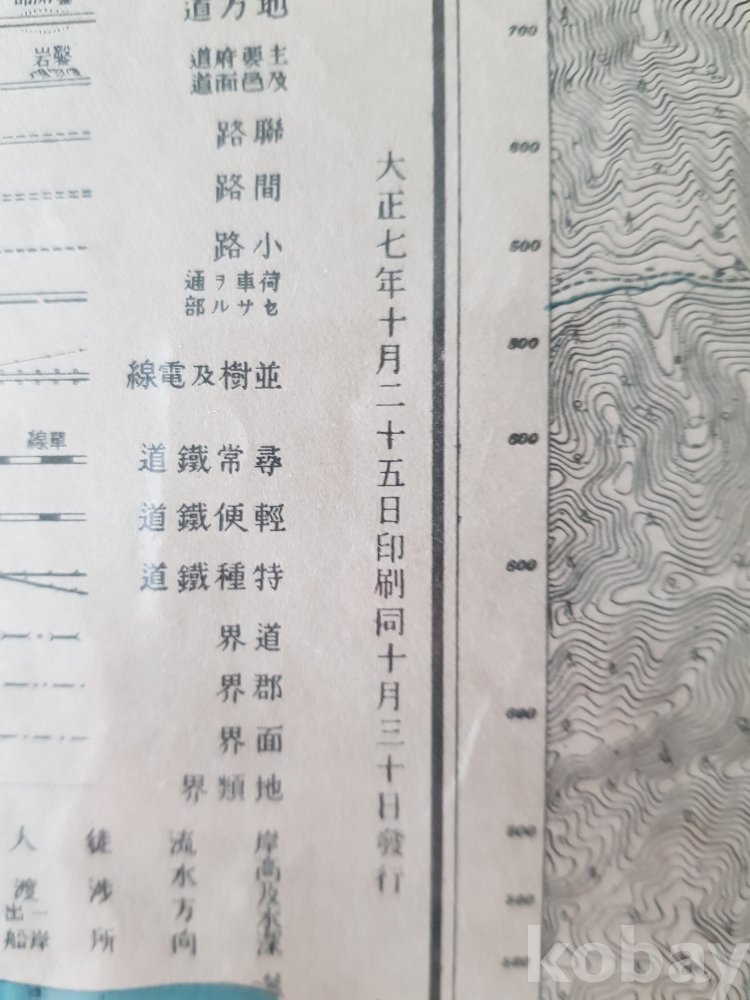 地方道
鑿岩
主要府道
及邑面道
聯路
間路
小路
荷車ヲ通
セサル部
並樹及電線
單線
尋常鐵道
輕便鐵道
特種鐵道
道界
郡界
面界
地類界
岸高及水深
流水方向
徒涉所
人渡
大正七年十月二十五日印刷同十月三十日發行
700
600
500
kobay